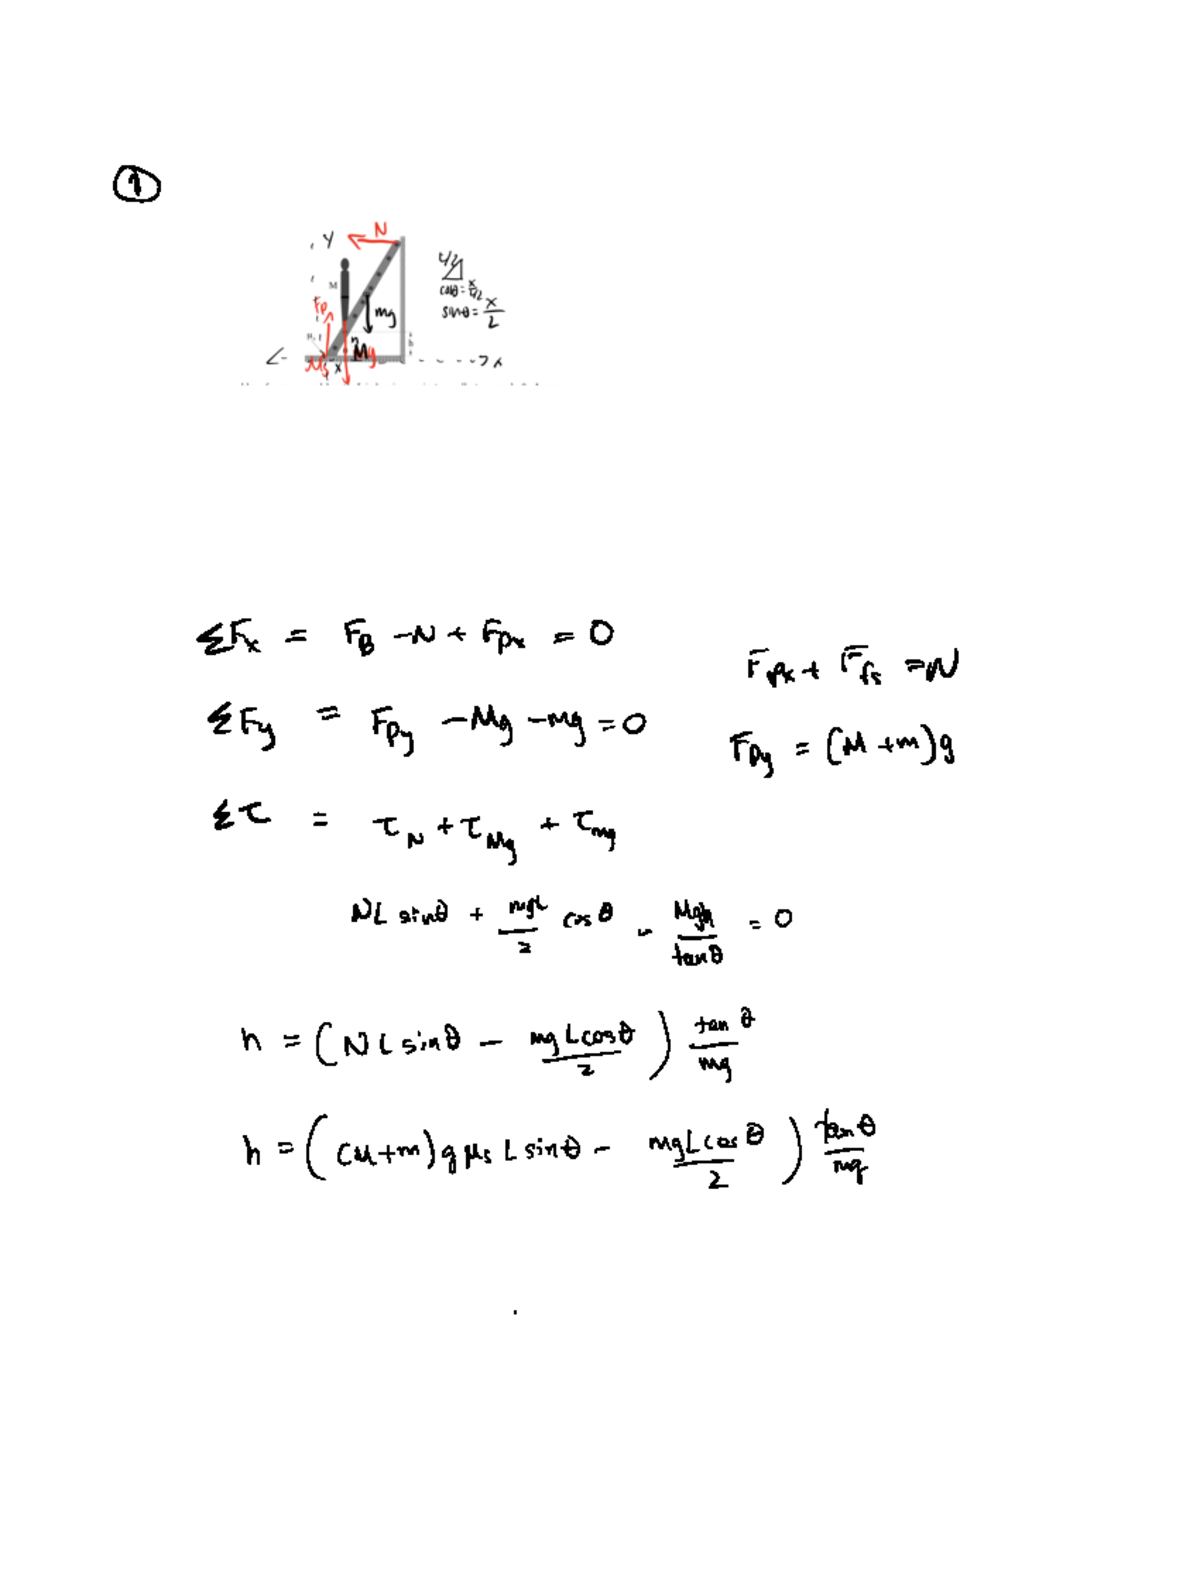 ①
Y N
M
Fp mg
Mg
μs x x
L/2
cosθ = x/L/2
sinθ = x/2
ΣFx = FB - N + Fpx = 0
Fpx + Ffs = N
ΣFy = Fpy - Mg - mg = 0
Fpy = (M + m)g
Στ = τN + τMg + τmg
NL sinθ + mgL/2 cosθ - Mgh/tanθ = 0
h = (NL sinθ - mgLcosθ/2) tanθ/mg
h = ((M+m)gμs L sinθ - mgLcosθ/2) tanθ/mg